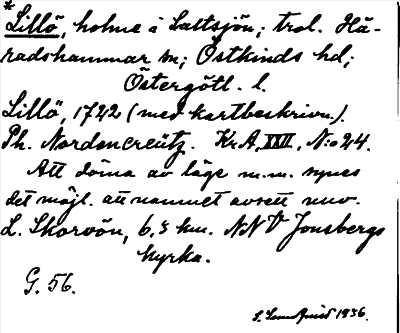 * Lillö, holme i Saltsjön; trol. Hä-
radshammar sn; Östkinds hd;
Östergötl. l.
Lillö, 1722 (med kartbeskrivn.).
Ph. Nordencreütz. Kr.A, XXII, N:o 24.
Att döma av läge m.m. synes
det möjl. att namnet avsett nuv.
L. Skorvön, 6.3 km. NNV Jonsbergs
kyrka.
G. 56.
S. Lundqvist 1936.